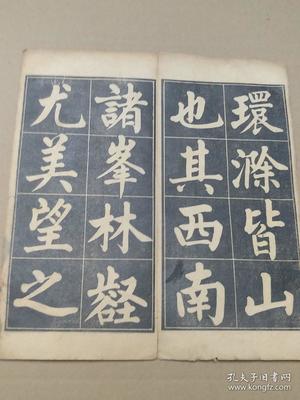 環滁皆山
也其西南
諸峯林壑
尤美望之
孔夫子旧书网